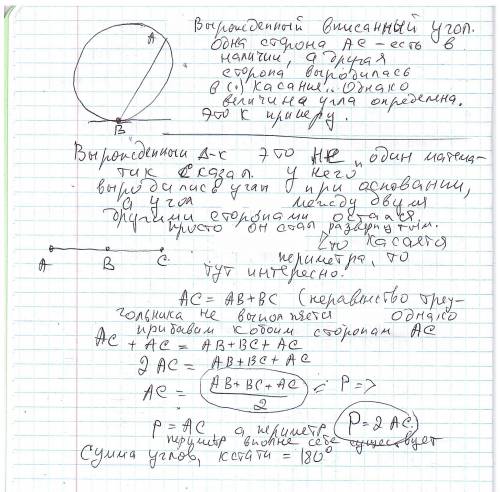 Вырожденный вписанный угол.
одна сторона AC - есть в
наличии, а другая
сторона выродилась
в (·) касание.. Однако
величина угла определена.
Это к примеру.
A
B
Вырожденный Δ-к это НЕ "один матема-
тик сказал. У него
выродились углы при основании,
а угол между двумя
другими сторонами остался
просто он стал развернутым.
Что касается
периметра, то
тут интересно.
A B C
AC = AB+BC (неравенство треу-
гольника не выполняется однако
прибавим к обоим сторонам AC
AC + AC = AB+BC+AC
2 AC = AB+BC+AC
AC = AB+BC+AC / 2 = P =>
P = AC, а периметр P=2AC.
периметр вполне себе существует
Сумма углов, кстати = 180°